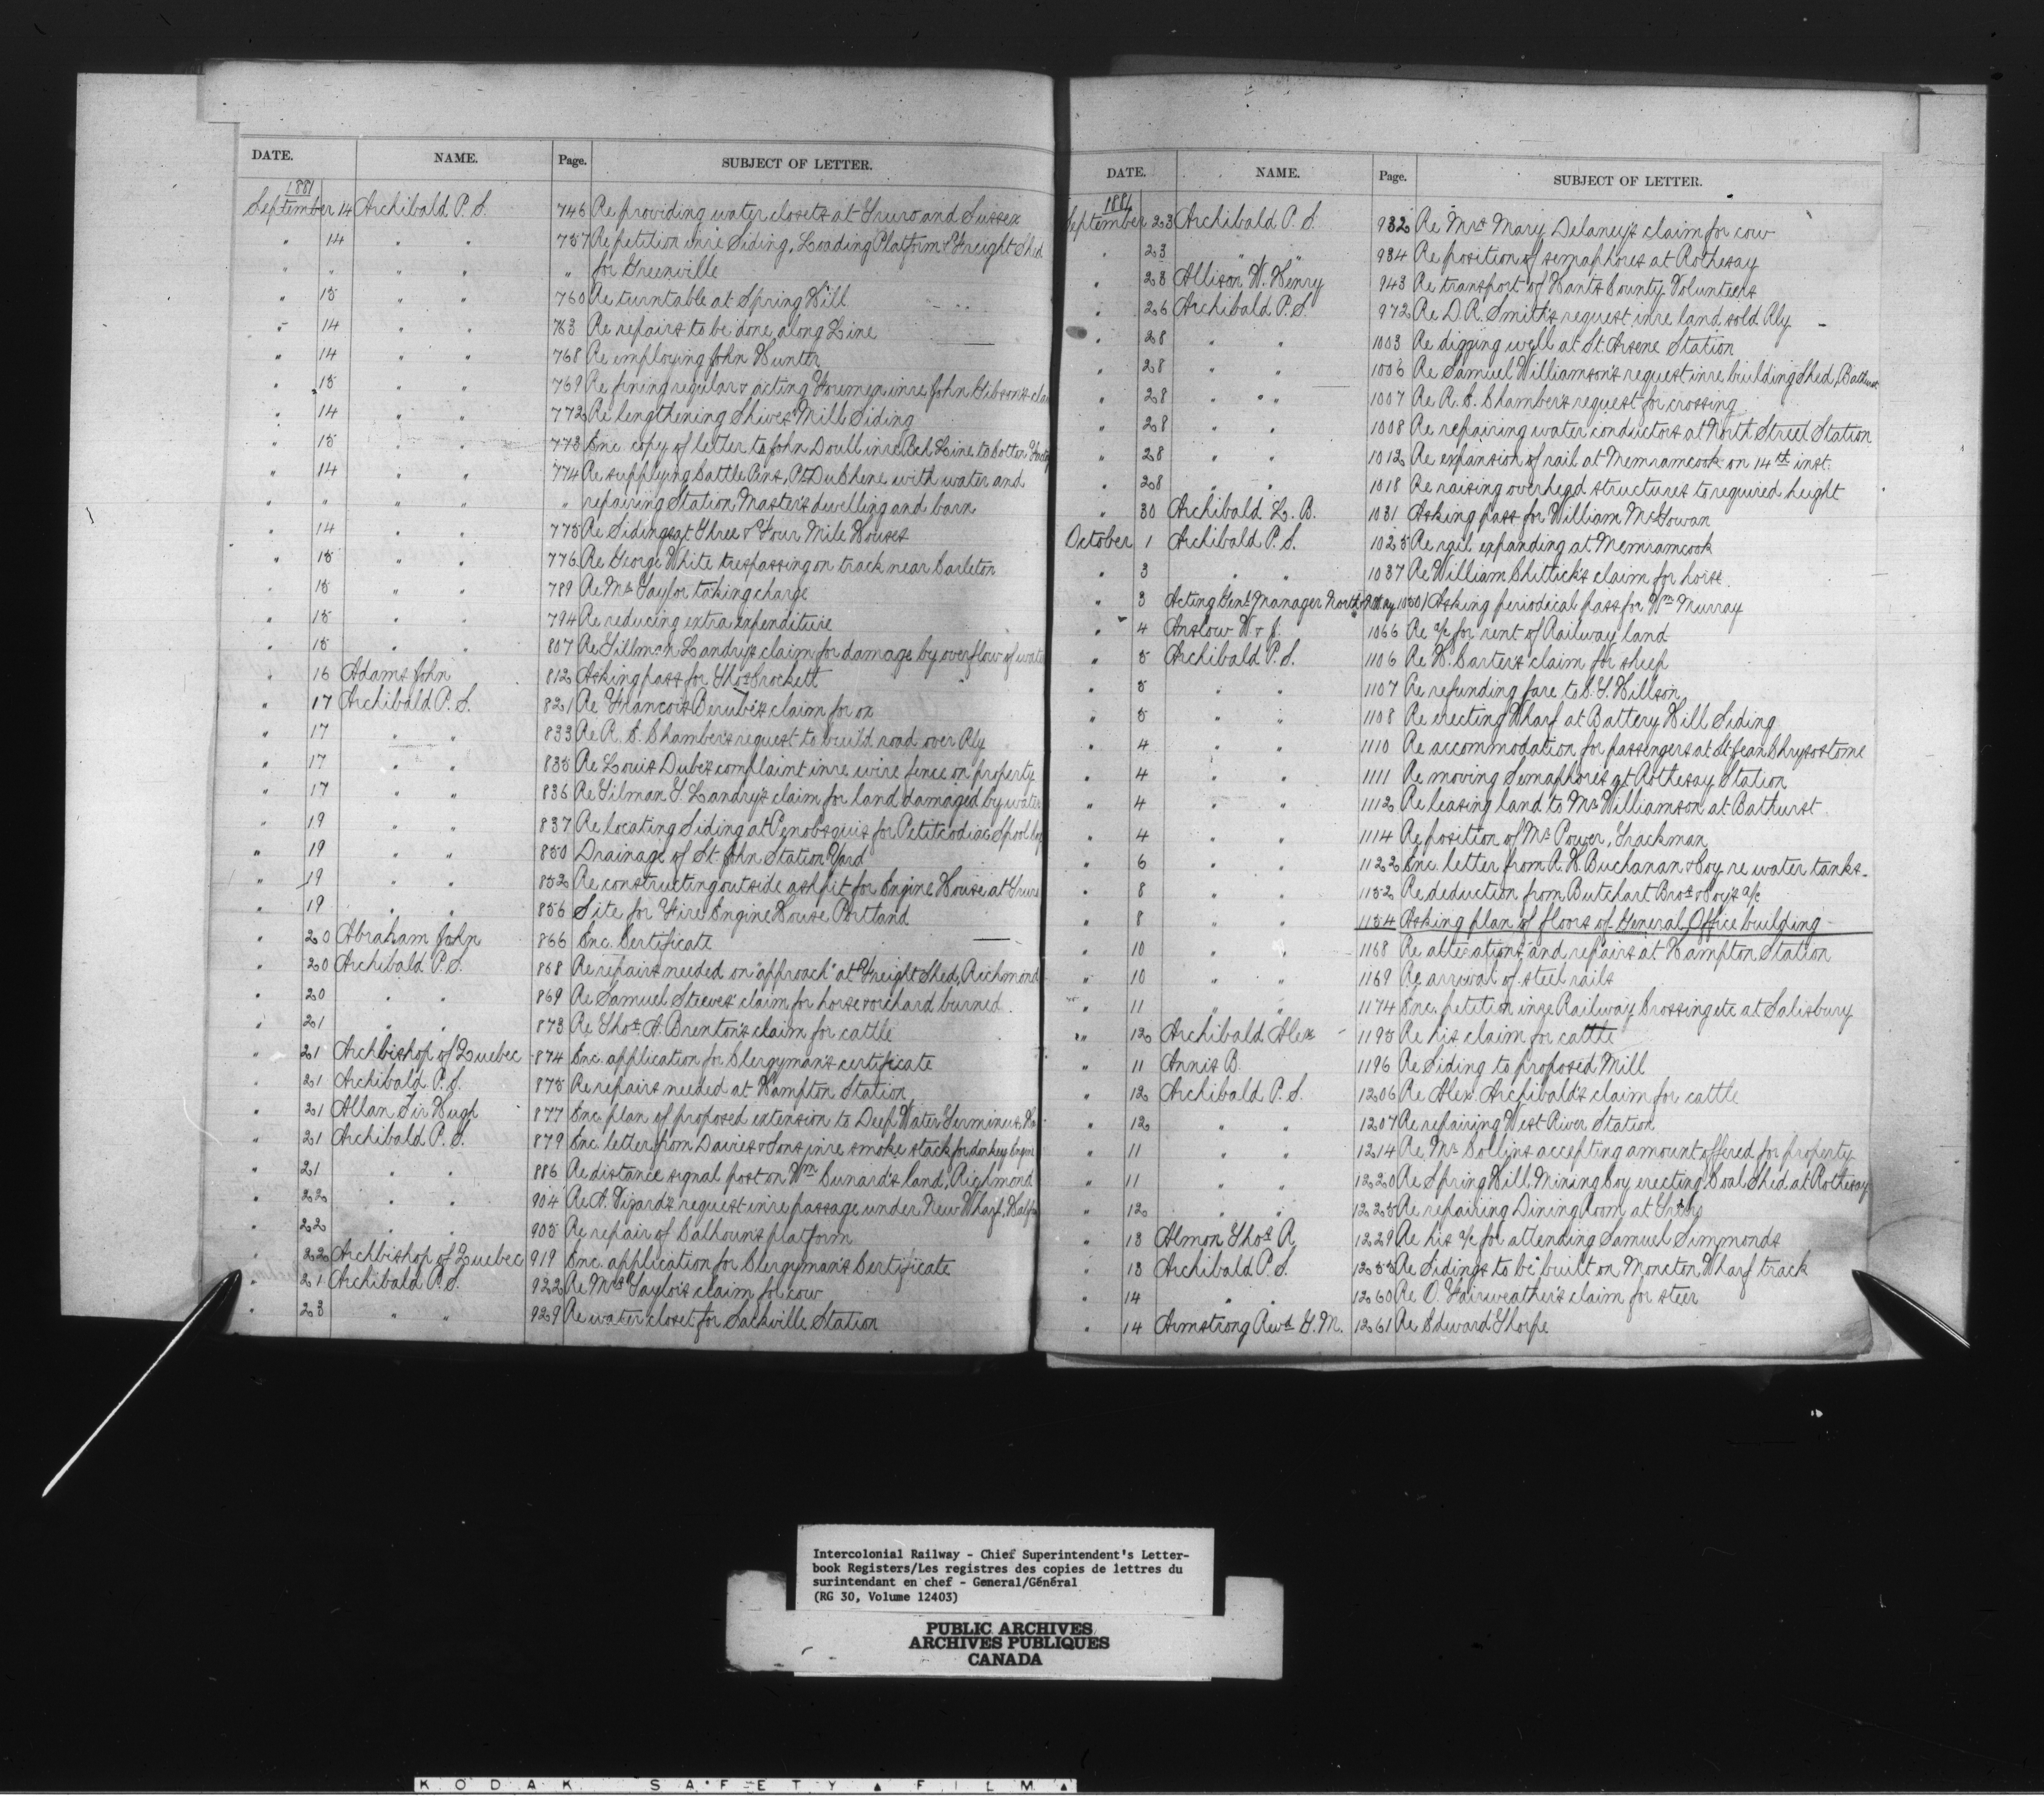 DATE. NAME. Page. SUBJECT OF LETTER.
1881
September 14 Archibald P. S. 746 Re providing water closets at Truro and Sussex
" 14 " " 757 Re petition inre Siding, Loading Platform & Freight Shed
" " " " " for Greenville
" 15 " " 760 Re turntable at Spring Hill
" 14 " " 763 Re repairs to be done along Line
" 14 " " 768 Re employing John Hunter
" 15 " " 769 Re fining regular & acting Foremen inre John Gibson's
" 14 " " 772 Re lengthening Shives Mill Siding
" 15 " " 773 Enc copy of letter to John Doull inre Bch Line to Cotton
" 14 " " 774 Re supplying Cattle Pens, Pt DuChene with water and
" " " " " repairing Station Master's dwelling and barn
" 14 " " 775 Re Sidings at Three & Four Mile Houses
" 15 " " 776 Re George White trespassing on track near Carleton
" 15 " " 789 Re Mr Taylor taking charge
" 15 " " 794 Re reducing extra expenditure
" 15 " " 807 Re Tillman Landry's claim for damage by overflow of water
" 16 Adams John 812 Asking pass for Thos Crockett
" 17 Archibald P. S. 821 Re Francois Berube's claim for ox
" 17 " " 833 Re R. C. Chamber's request to build road over Rly
" 17 " " 835 Re Louis Dube's complaint inre wire fence on property
" 17 " " 836 Re Tilman T. Landry's claim for land damaged by water
" 19 " " 837 Re locating Siding at Penobsquis for Petitcodiac Spool
" 19 " " 850 Drainage of St John Station Yard
" 19 " " 852 Re constructing outside ashpit for Engine House at Truro
" 19 " " 856 Site for Fire Engine House Portland
" 20 Abraham John 866 Enc. Certificate
" 20 Archibald P. S. 868 Re repairs needed on "approach" at Freight Shed, Richmond
" 20 " " 869 Re Samuel Steeves' claim for horse & orchard burned
" 21 " " 873 Re Thos. A. Brenton's claim for cattle
" 21 Archbishop of Quebec 874 Enc. application for Clergyman's certificate
" 21 Archibald P. S. 875 Re repairs needed at Hampton Station
" 21 Allan Sir Hugh 877 Enc. plan of proposed extension to Deep Water Terminus
" 21 Archibald P. S. 879 Enc. letter from Davies & Sons inre smoke stack for donkey Engine
" 21 " " 886 Re distance signal post on Wm Cunard's land, Richmond
" 22 " " 904 Re A. Vizard's request inre passage under New Wharf, Halfx
" 22 " " 905 Re repair of Calhoun's platform
" 22 Archbishop of Quebec 919 Enc. application for Clergyman's Certificate
" 21 Archibald P. S. 922 Re Mrs Taylor's claim for cow
" 23 " " 929 Re water closet for Sackville Station
DATE. NAME. Page. SUBJECT OF LETTER.
1881
September 23 Archibald P. S. 932 Re Mrs Mary Delaney's claim for cow
" 23 " " 934 Re position of semaphores at Rothesay
" 23 Allison W. Henry 943 Re transport of Hants County Volunteers
" 26 Archibald P. S. 972 Re D. R. Smith's request inre land sold Rly
" 28 " " 1003 Re digging well at St. Arsene Station
" 28 " " 1006 Re Samuel Williamson's request inre building Shed, Bathurst
" 28 " " 1007 Re R. C. Chamber's request for crossing
" 28 " " 1008 Re repairing water conductors at North Street Station
" 28 " " 1012 Re expansion of rail at Memramcook on 14th inst.
" 28 " " 1018 Re raising overhead structures to required height
" 30 Archibald L. B. 1031 Asking pass for William McGowan
October 1 Archibald P. S. 1025 Re rail expanding at Memramcook
" 3 " " 1037 Re William Chittick's claim for horse
" 3 Acting Genl Manager North 1050 Asking periodical pass for Wm Murray
" 4 Anslow W. & J. 1066 Re a/c for rent of Railway land
" 5 Archibald P. S. 1106 Re H. Carter's claim for sheep
" 5 " " 1107 Re refunding fare to C. Y. Willson
" 5 " " 1108 Re erecting Wharf at Battery Hill Siding
" 4 " " 1110 Re accommodation for passengers at St Jean Chrysostome
" 4 " " 1111 Re moving Semaphores at Rothesay Station
" 4 " " 1112 Re leasing land to Mr Williamson at Bathurst
" 4 " " 1114 Re position of Mr Power, Trackman
" 6 " " 1122 Enc. letter from A. H. Buchanan & Coy re water tanks
" 8 " " 1152 Re deduction from Butchart Bros & Coy's a/c
" 8 " " 1154 Asking plan of floors of General Office building
" 10 " " 1168 Re alterations and repairs at Hampton Station
" 10 " " 1169 Re arrival of steel rails
" 11 " " 1174 Enc. petition inre Railway Crossing etc at Salisbury
" 12 Archibald Alex 1195 Re his claim for cattle
" 11 Annis B. 1196 Re Siding to proposed Mill
" 12 Archibald P. S. 1206 Re Alex. Archibald's claim for cattle
" 12 " " 1207 Re repairing West River Station
" 11 " " 1214 Re Mr Collins accepting amount offered for property
" 11 " " 1220 Re Spring Hill Mining Coy erecting Coal Shed at Rothesay
" 12 " " 1225 Re repairing Dining Room at Truro
" 13 Almon Thos. R. 1229 Re his a/c for attending Samuel Simmonds
" 13 Archibald P. S. 1255 Re Sidings to be built on Moncton Wharf track
" 14 " " 1260 Re O. Fairweather's claim for steer
" 14 Armstrong Revd G. M. 1261 Re Edward Thorpe
Intercolonial Railway - Chief Superintendent's Letter-
book Registers/Les registres des copies de lettres du
surintendant en chef - General/Général
(RG 30, Volume 12403)
PUBLIC ARCHIVES
ARCHIVES PUBLIQUES
CANADA
KODAK SAFETY FILM